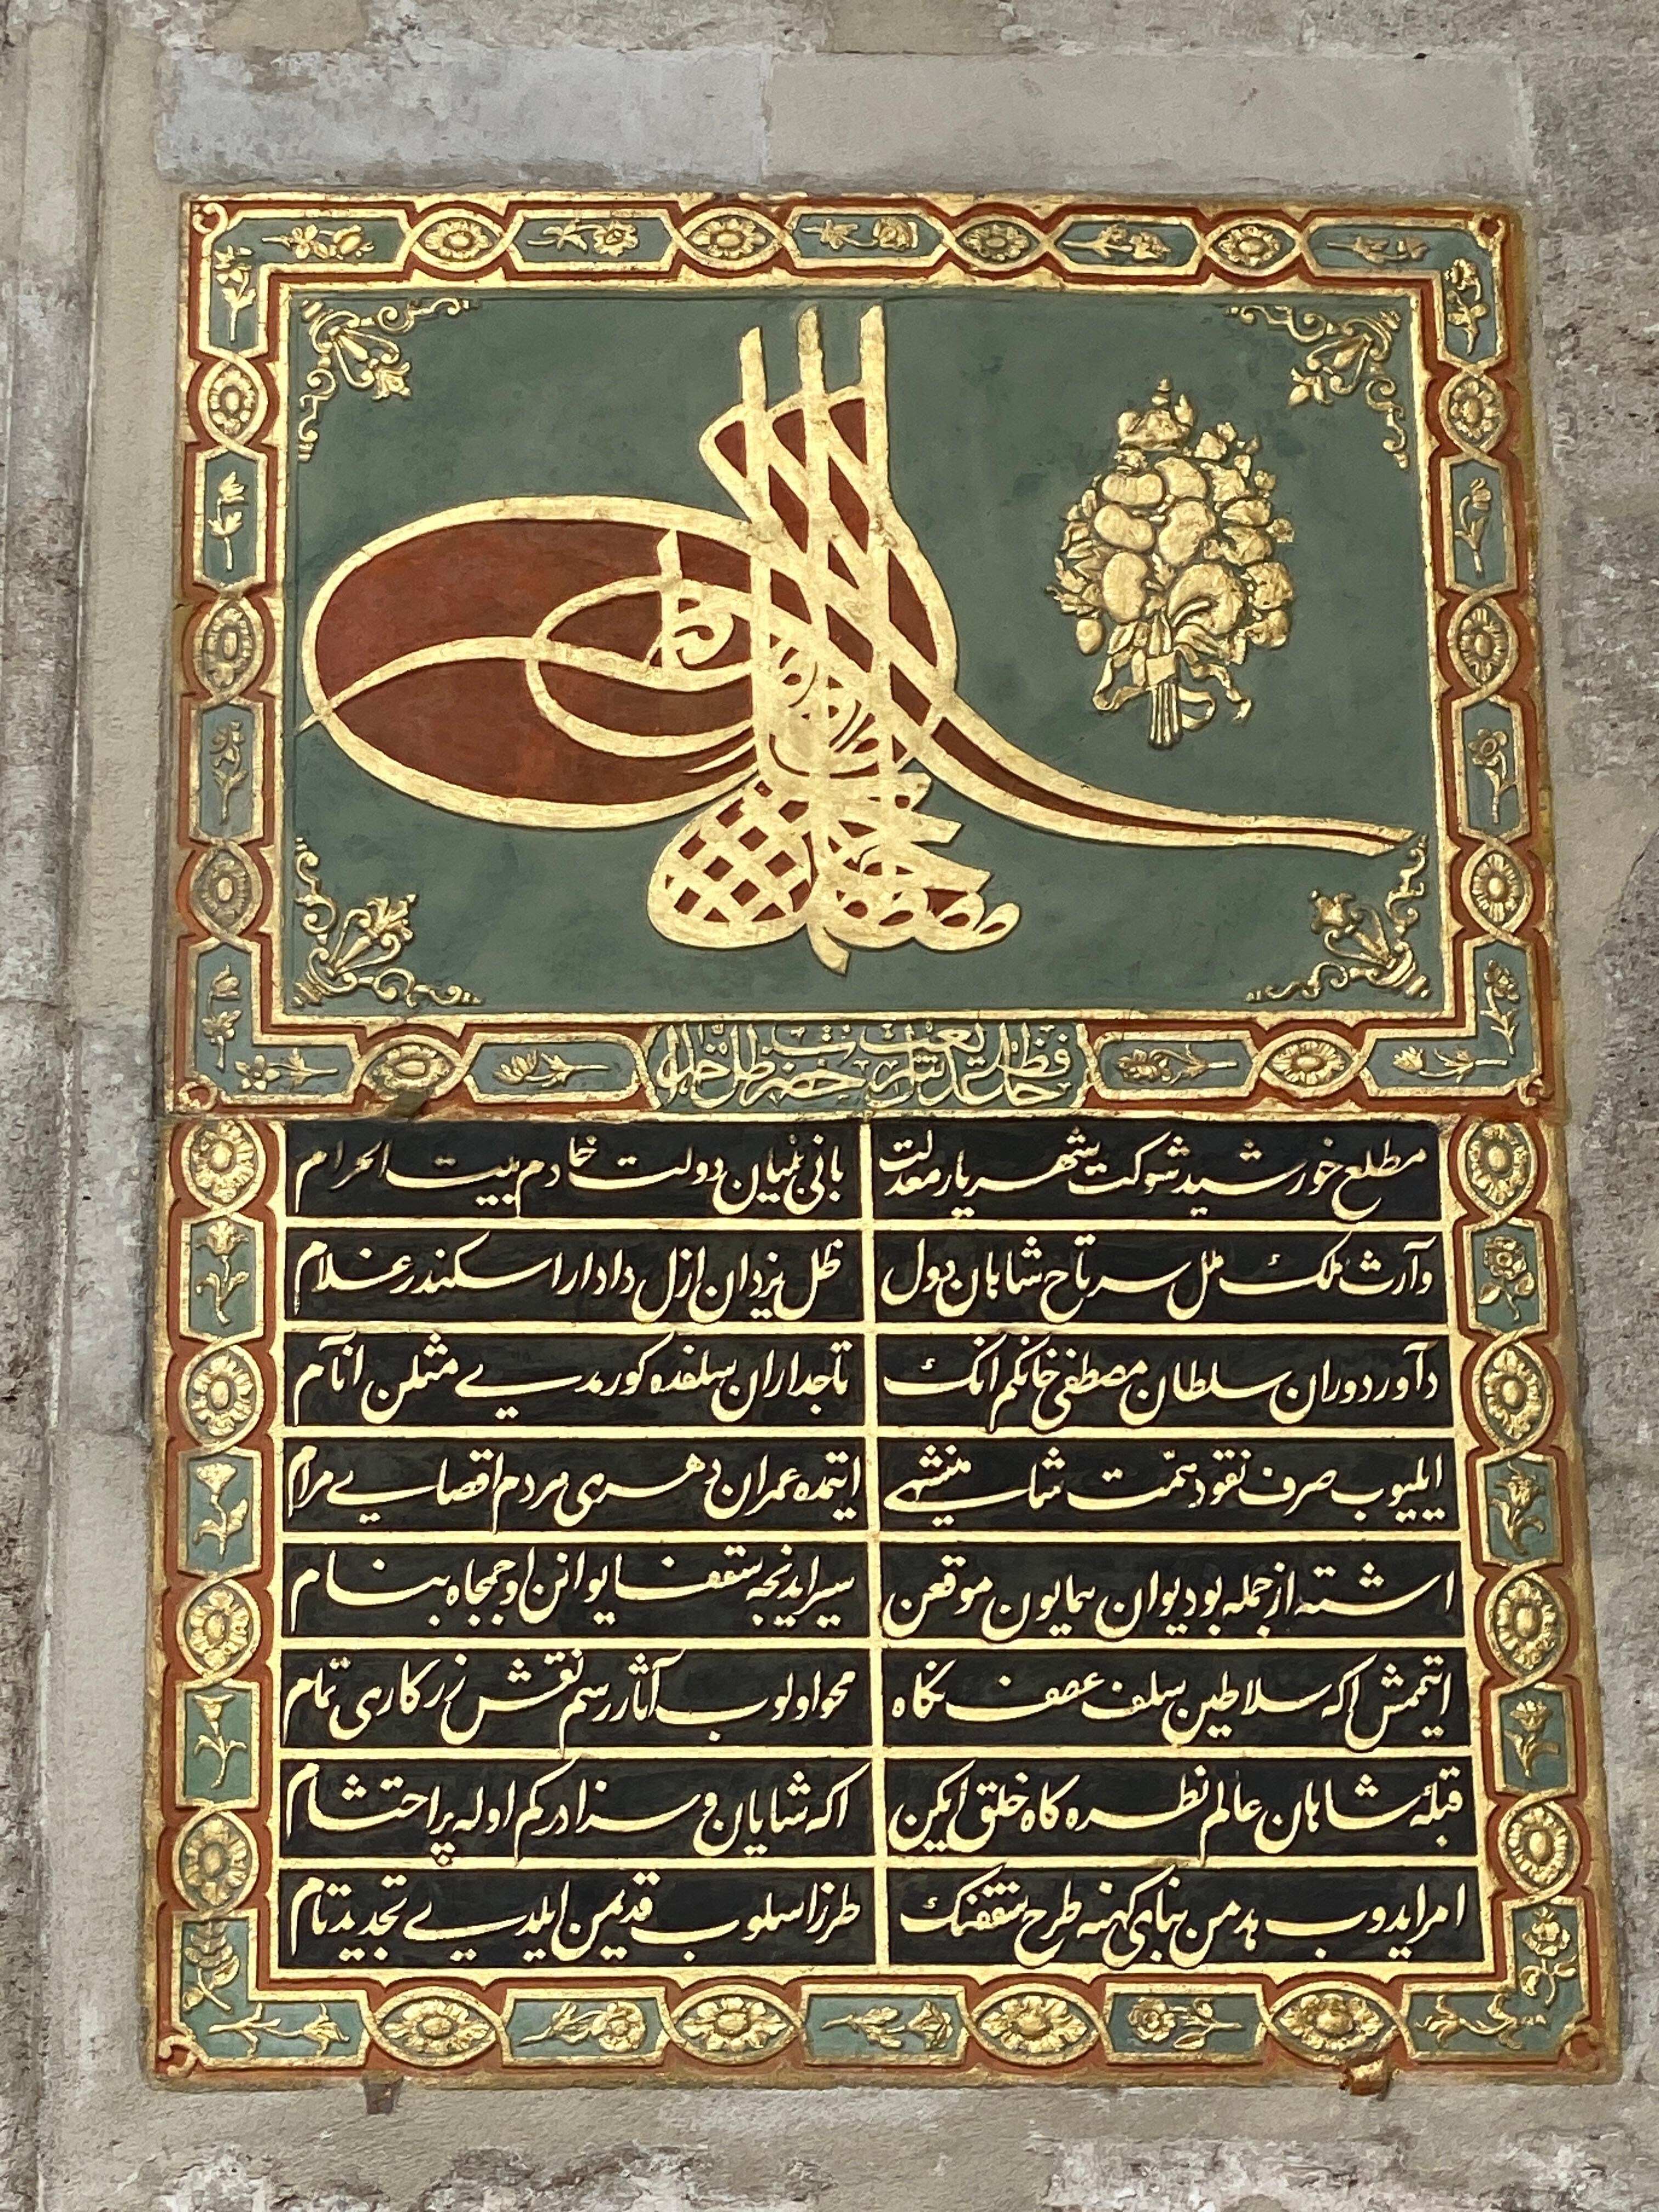 حافظ شریعت حضرت ظل اله
مطلع خورشید شوکت شهریار معدلت
بانی بنیان دولت خادم بیت الحرام
وآرث ملک ملل سرتاج شاهان دول
ظل یزدان ازل دادار اسکندر غلام
دآور دوران سلطان مصطفی خانکم انک
تاجداران سلفده کورمدیے مثلن انآم
ایلیوب صرف نقود همّت شاهنشهے
ایتمده عمران دهری هر دم اقصایے مرام
اشته از جمله بو دیوان همایون موقعن
سیر ایدنجه سقف ایوانن او جمجاه بنام
ایتممش اکه سلاطین سلف عطف نکاه
محو اولوب آثار رسم نقش زرکاری تمام
قبلۀ شاهان عالم نظره کاه خلق ایکن
اکه شایان و سزادرکم اوله پر احتشام
امر ایدوب هدمن بنای کهنه طرح سقفنک
طرز اسلوب قدیمن ایلدیے تجدید تام